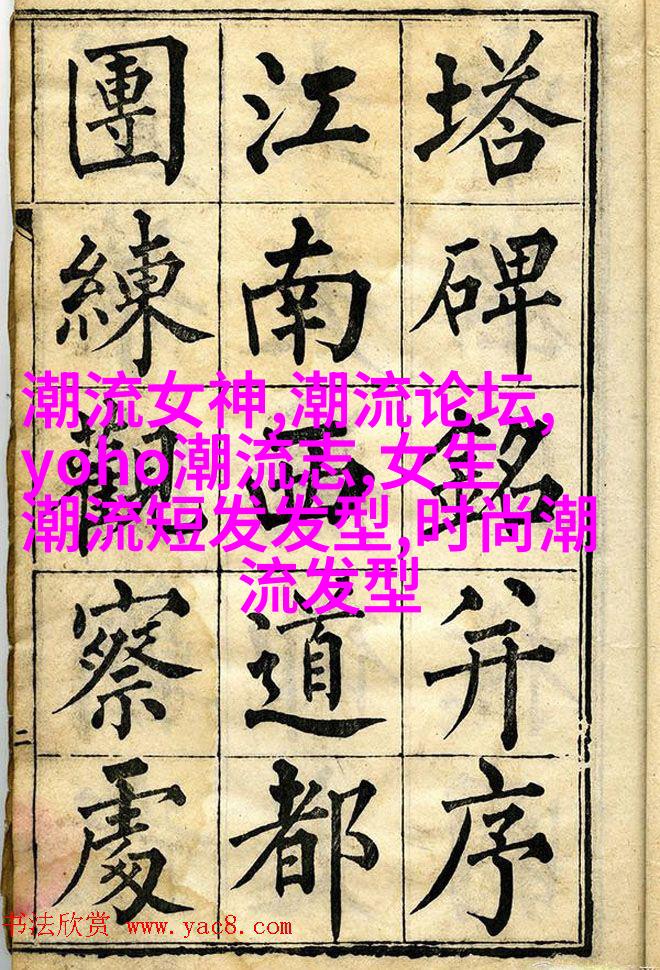 塔碑銘并序
江南西道都
團練觀察處
二
潮流女神,潮流论坛,
yoho潮流志,女生
潮流短发发型,时尚潮
流发型
书法欣赏 www.yac8.com